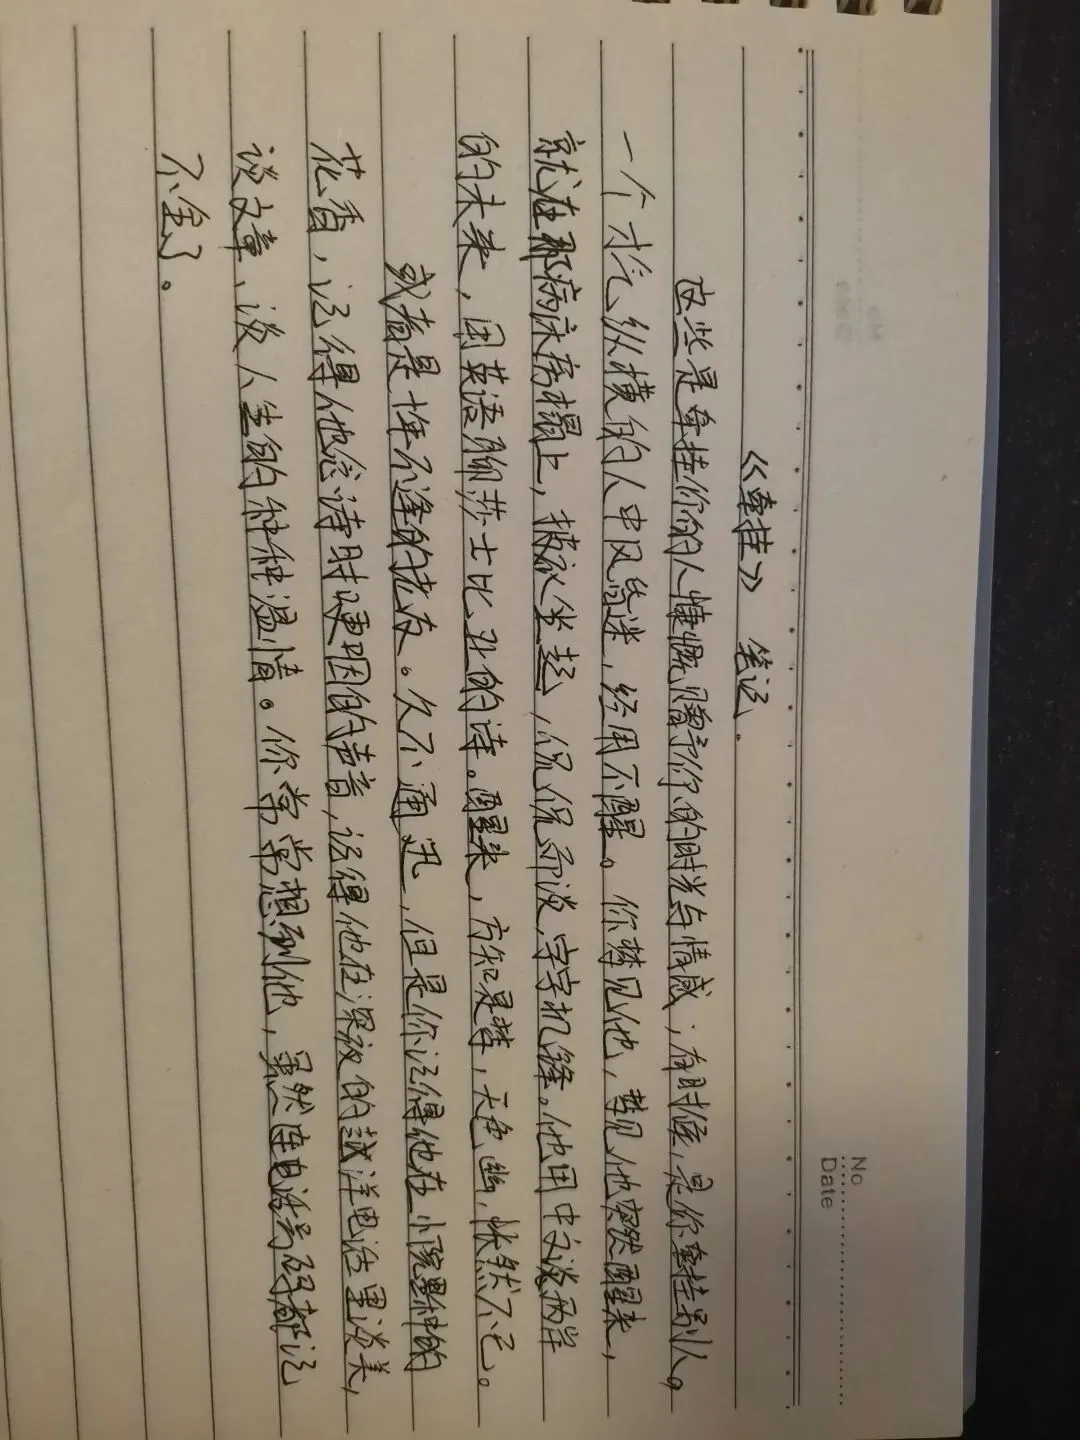 No
Date
《牵挂》 笔记.
这些是牵挂你的人慷慨赠予你的时光与情感；有时候，是你牵挂别人。
一个才气纵横的人中风昏迷，经月不醒。你梦见他，梦见他突然醒来，
就在那病床病榻上，披衣坐起，侃侃而谈，字字机锋。他用中文谈两岸
的未来，用英语聊莎士比亚的诗。醒来，方知是梦，天色幽，怅然不已。
或者是十年不逢的老友。久不通迅，但是你记得他在小院里种的
花香，记得他念诗时哽咽的声音，记得他在深夜的越洋电话里谈美，
谈文章、谈人生的种种温情。你常常想到他，虽然连电话号码都记
不全了。